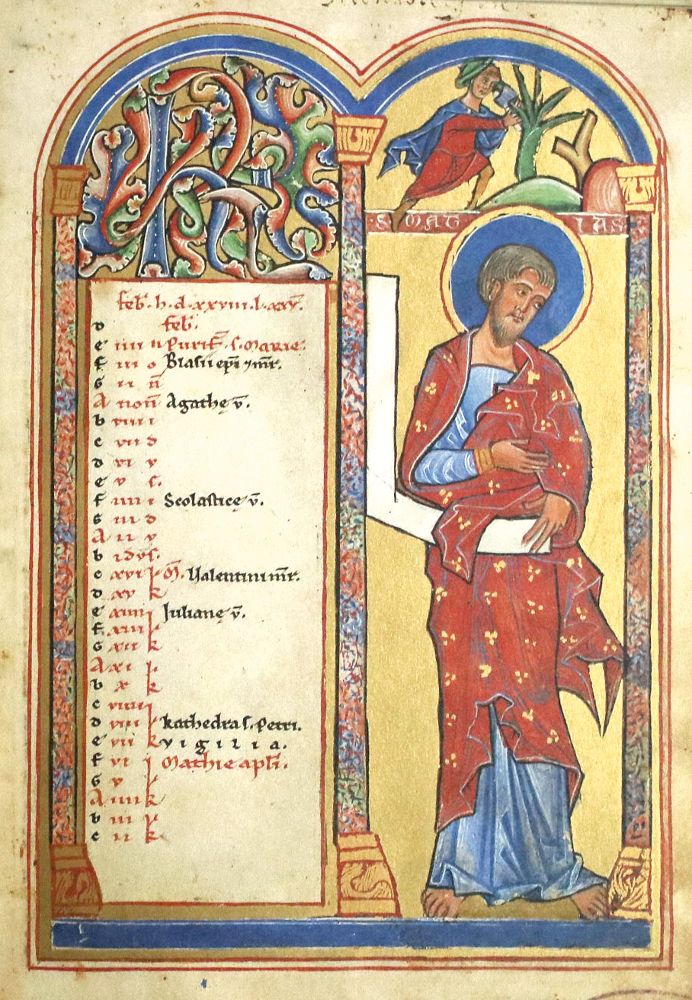 KL
S MAT IAS
feb̄. h. d. xxviii. l. xxx.
d feb̄.
e iiii n Purif̄. s. Marie.
f iii o Blasii ep̄i ⁊ m̄r.
g ii n̄
A non̄ Agathę v̄.
b viii i
c vii d
d vi v
e v s.
f iiii i Scolasticę v̄.
g iii d
A ii v
b idus.
c xvi k m̄. Valentini m̄r.
d xv k
e xiiii k Iulianę v̄.
f xiii k
g xii k
A xi k
b x k
c viiii
d viii k kathedra s. Petri.
e vii k vigilia.
f vi k Mathie apl̄i.
g v k
A iiii k
b iii k
c ii k